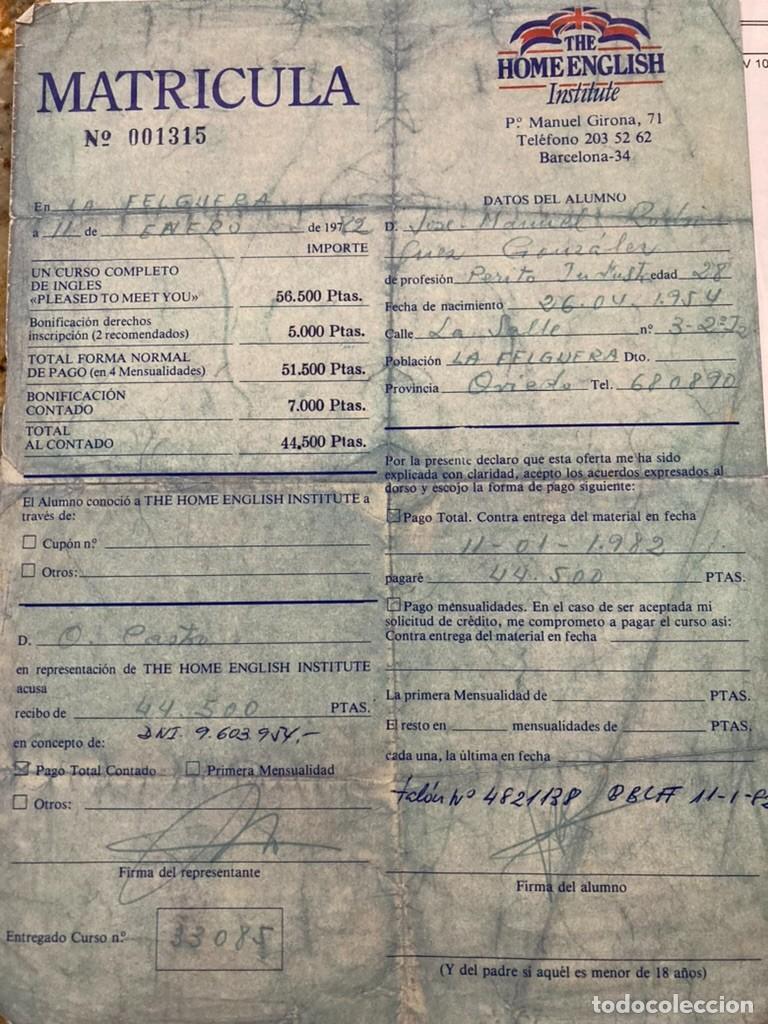 MATRICULA
Nº 001315
THE
HOME ENGLISH
Institute
Pº Manuel Girona, 71
Teléfono 203 52 62
Barcelona-34
V 10
En LA FELGUERA
a 11 de ENERO de 1982
IMPORTE
UN CURSO COMPLETO
DE INGLES
«PLEASED TO MEET YOU» 56.500 Ptas.
Bonificación derechos
inscripción (2 recomendados) 5.000 Ptas.
TOTAL FORMA NORMAL
DE PAGO (en 4 Mensualidades) 51.500 Ptas.
BONIFICACIÓN
CONTADO 7.000 Ptas.
TOTAL
AL CONTADO 44.500 Ptas.
El Alumno conoció a THE HOME ENGLISH INSTITUTE a
través de:
Cupón nº
Otros:
D. O. Castro
en representación de THE HOME ENGLISH INSTITUTE
acusa
recibo de 44.500 PTAS.
DNI. 9.603.954.-
en concepto de:
Pago Total Contado Primera Mensualidad
Otros:
Firma del representante
Entregado Curso nº 33085
DATOS DEL ALUMNO
D. Jose Manuel
González
de profesión Perito Indust edad 28
Fecha de nacimiento 26.04.1.954
Calle La Salle nº 3-2º
Población LA FELGUERA Dto.
Provincia Oviedo Tel. 680890
Por la presente declaro que esta oferta me ha sido
explicada con claridad, acepto los acuerdos expresados al
dorso y escojo la forma de pago siguiente:
Pago Total. Contra entrega del material en fecha
11-01-1.982
pagaré 44.500 PTAS.
Pago mensualidades. En el caso de ser aceptada mi
solicitud de crédito, me comprometo a pagar el curso así:
Contra entrega del material en fecha
La primera Mensualidad de PTAS.
El resto en mensualidades de PTAS,
cada una, la última en fecha
talón Nº 4821138 11-1-82
Firma del alumno
(Y del padre si aquél es menor de 18 años)
todocoleccion